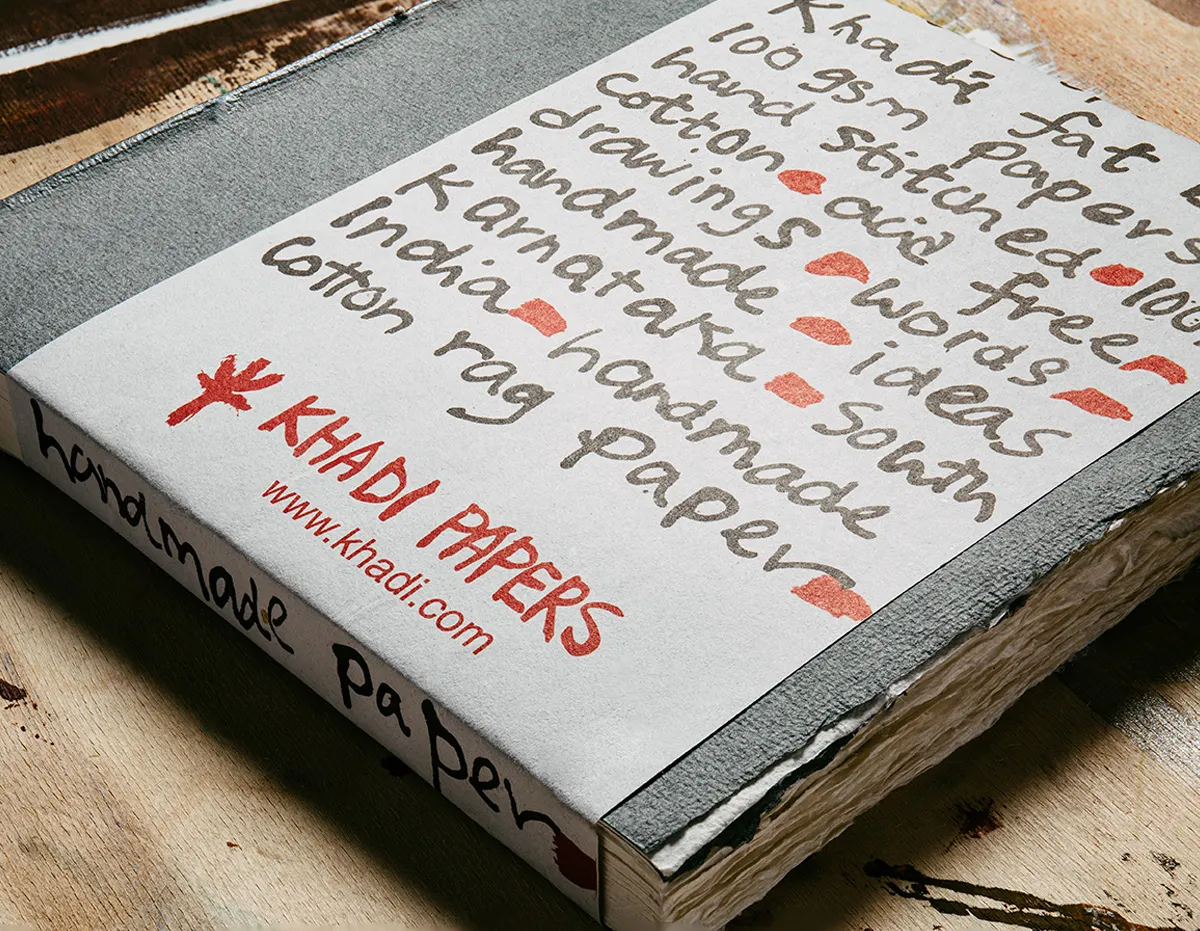 Khadi fat
100 gsm papers
hand stitched 100
cotton acid free
drawings words
handmade ideas
Karnataka South
India handmade
cotton rag paper
KHADI PAPERS
www.khadi.com
handmade paper